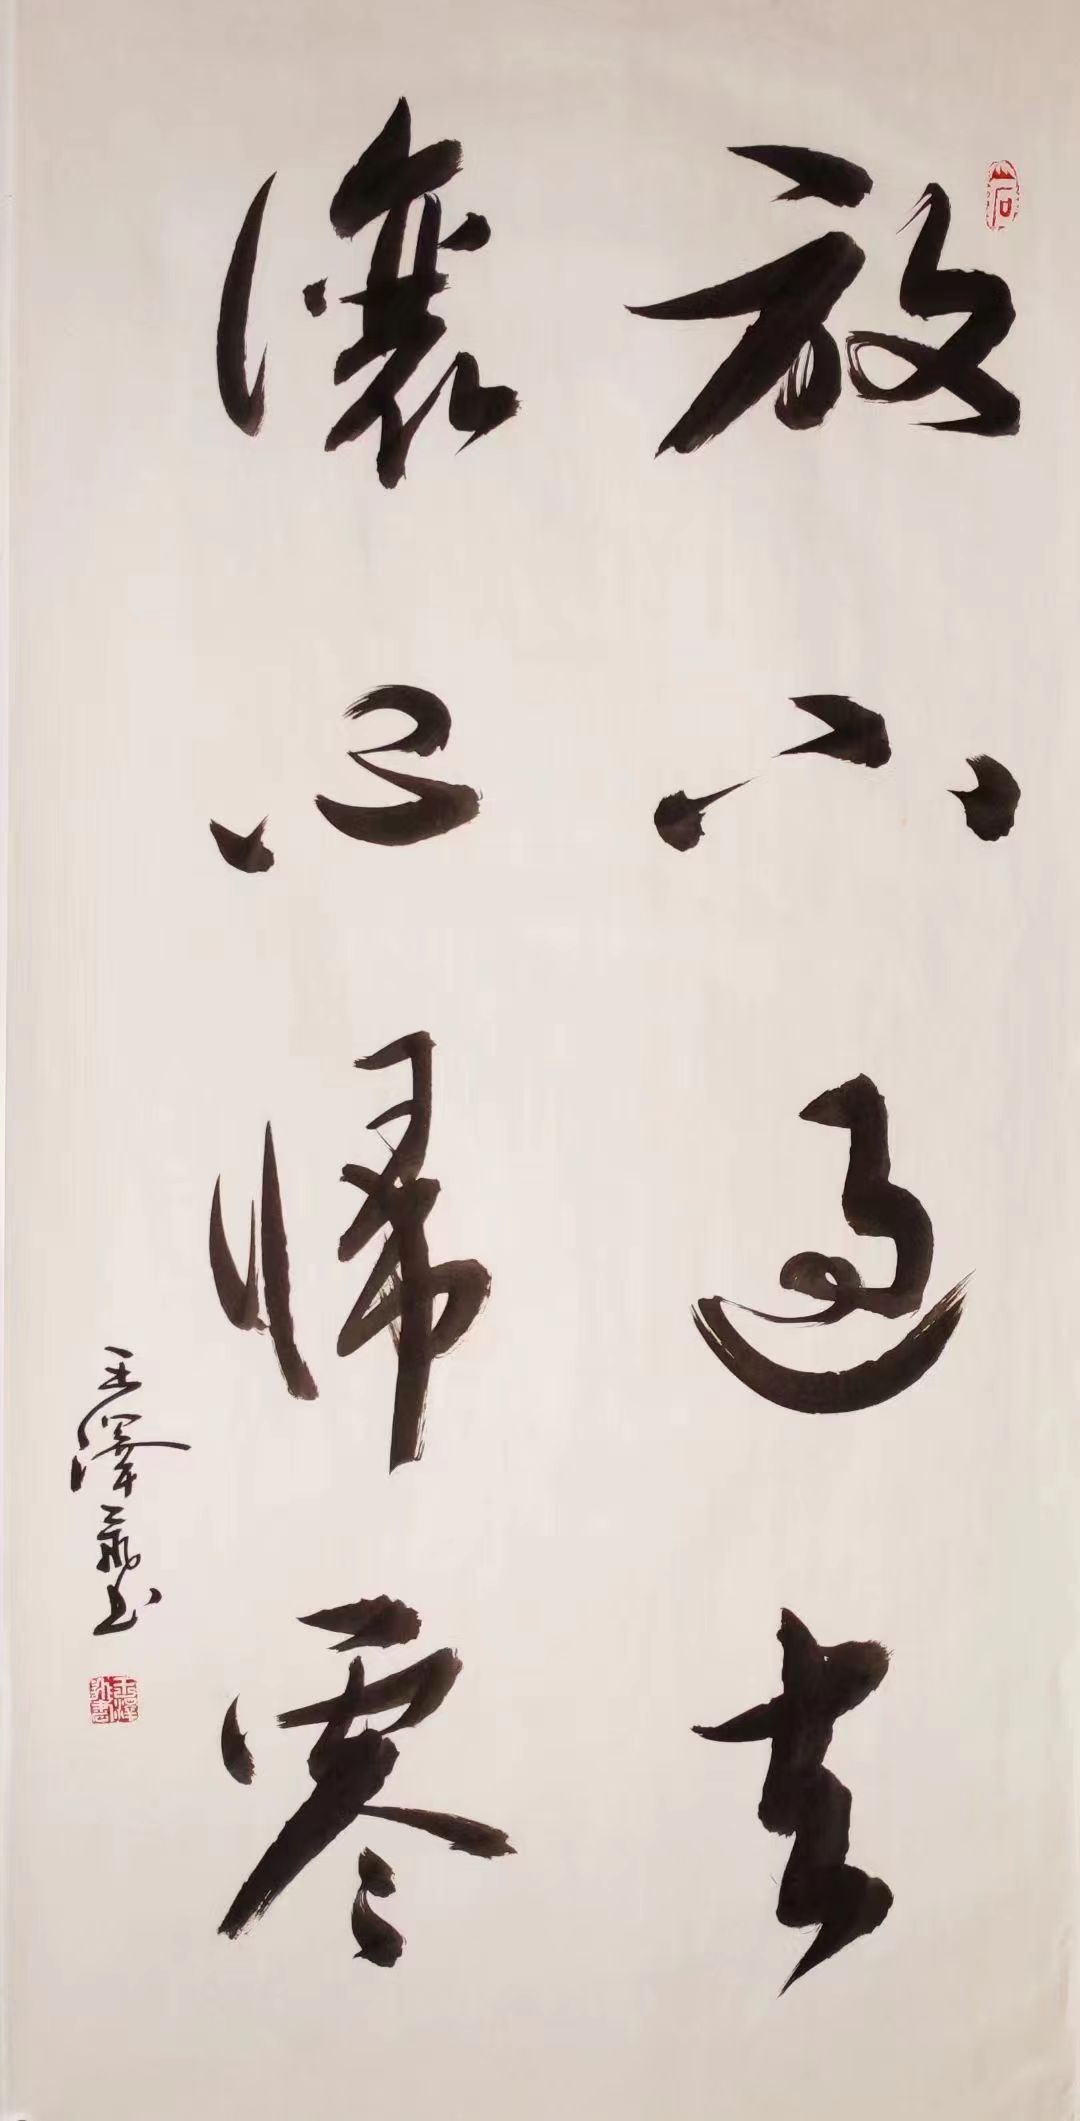 放下過去
讓心歸零
王澤書